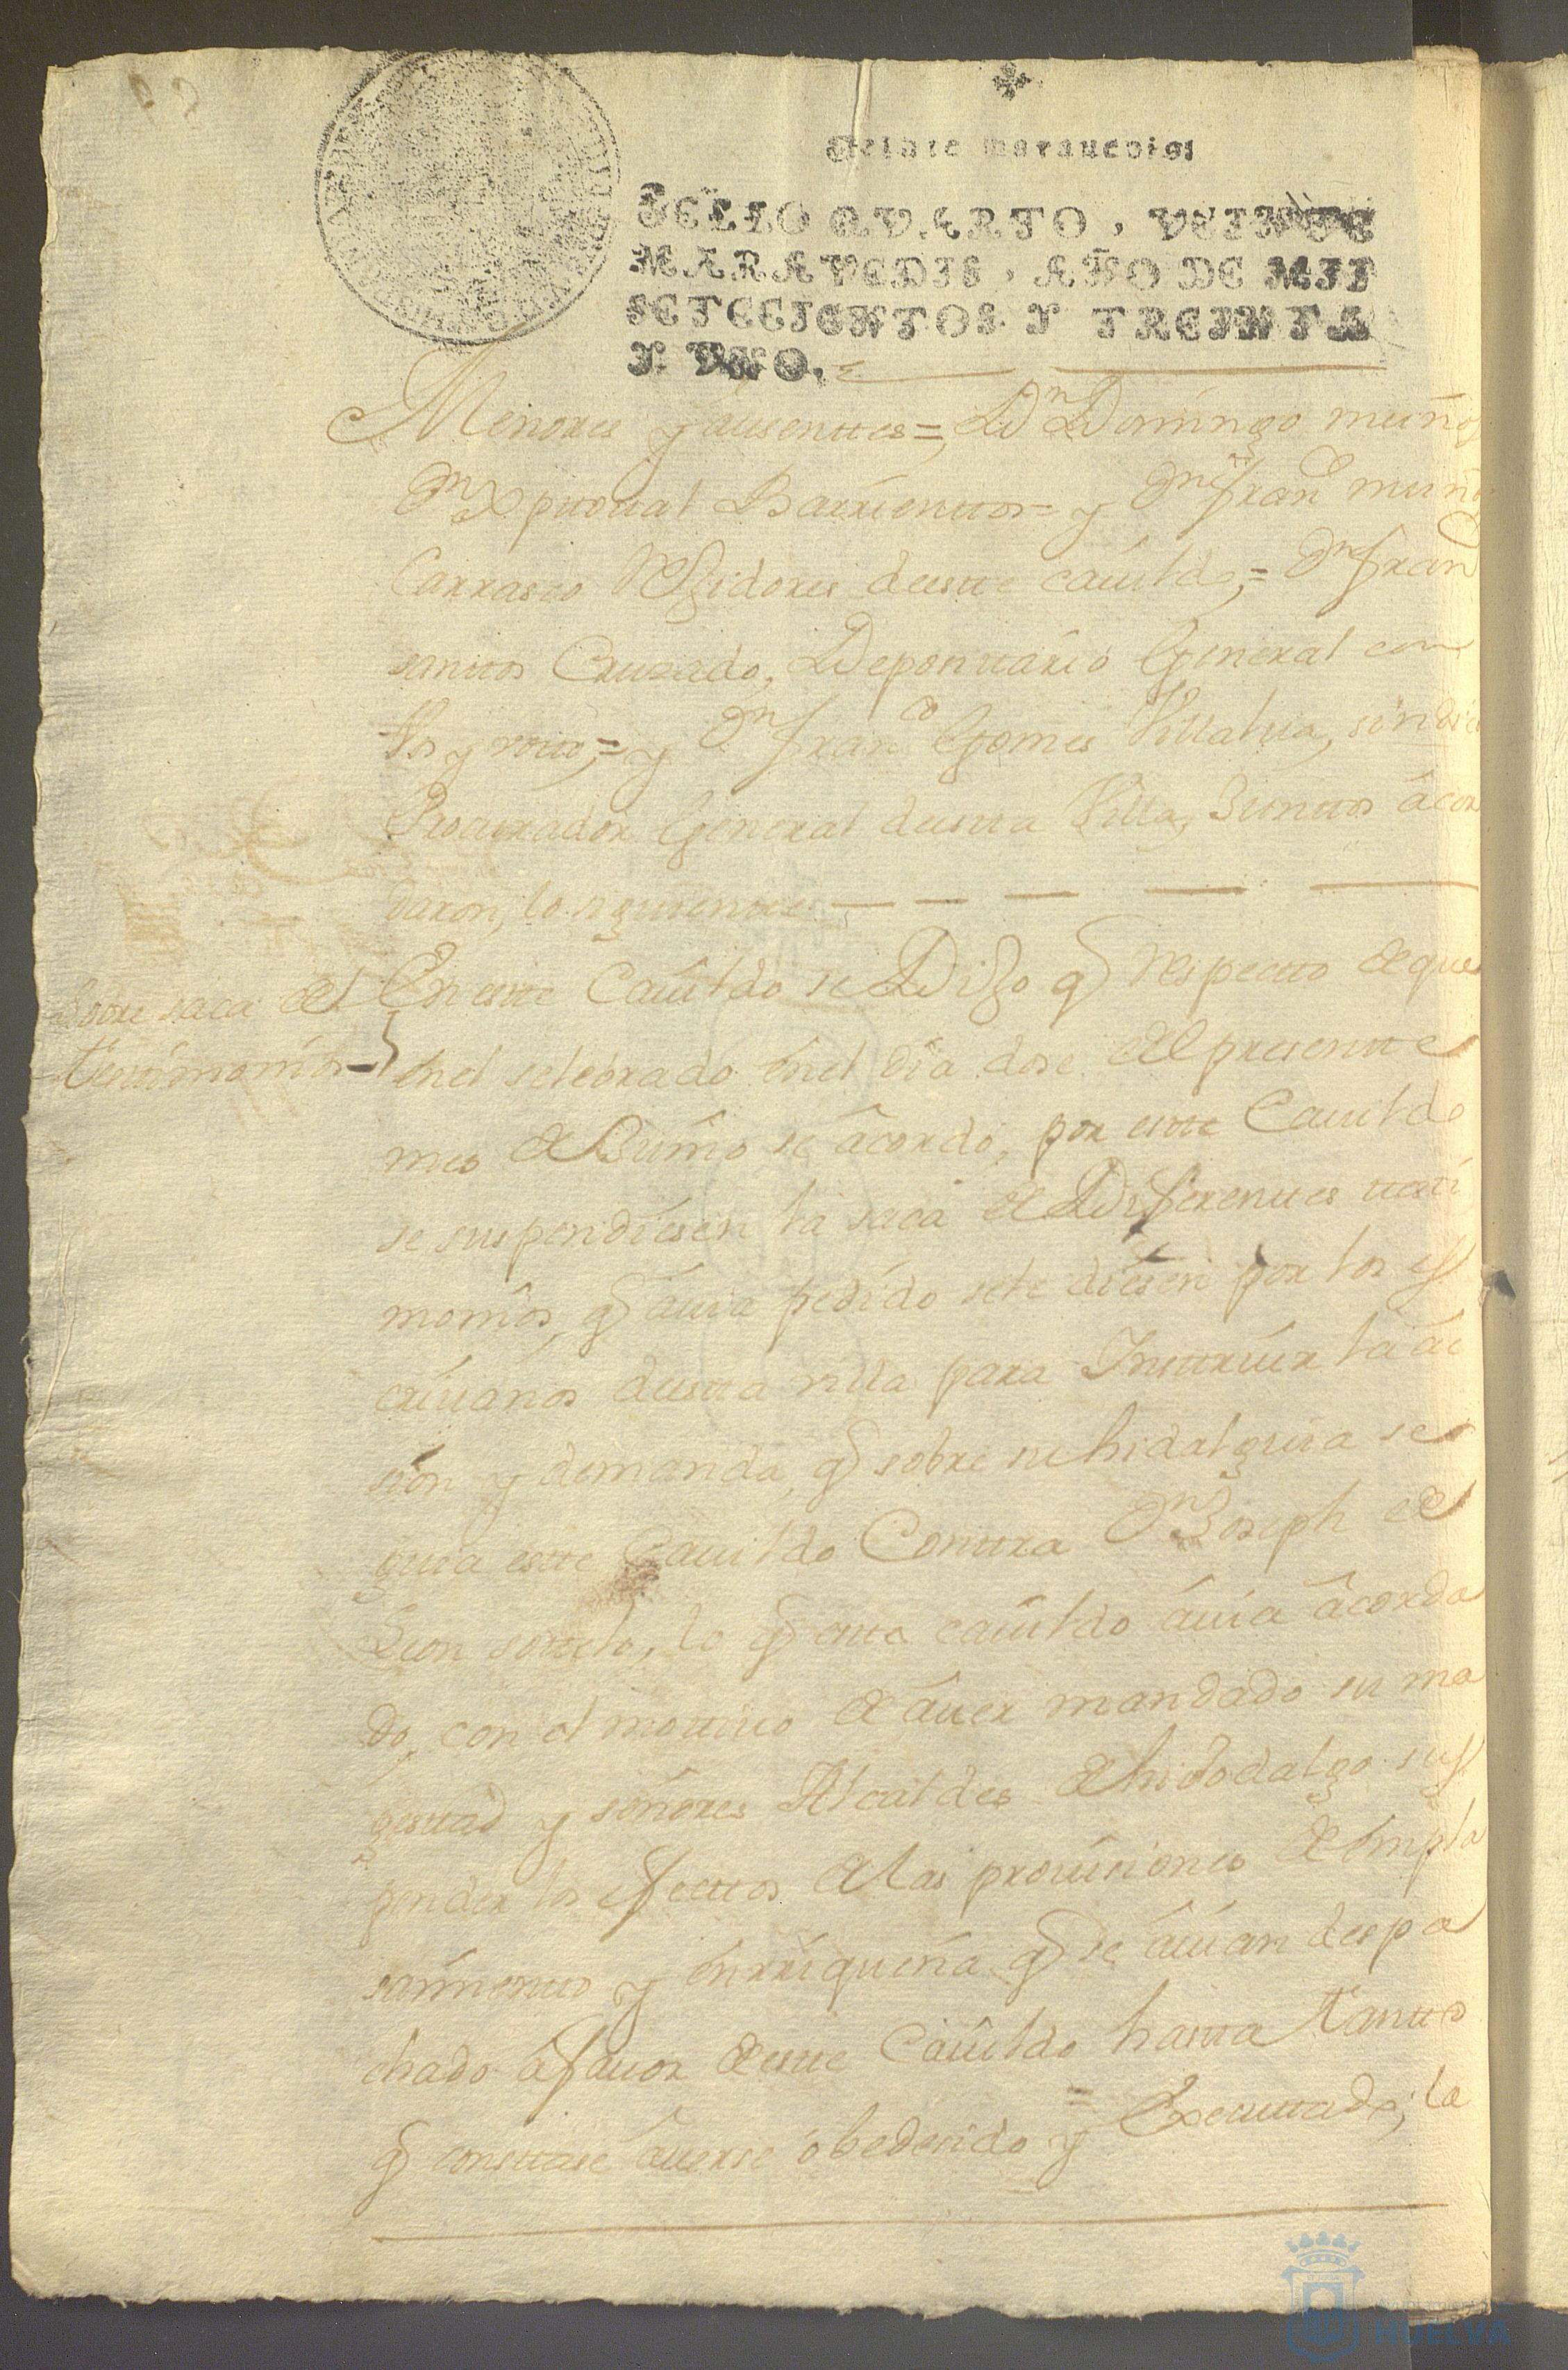 Veinte marauedis
SELLO QVARTO, VEINTE
MARAVEDIS, AÑO DE MIL
SETECIENTOS Y TREINTA
Y VNO.
Menores y ausenttes = Dn Domingo muños
Dn Xpttoual Barrienttos = y Dn Franco muños
Carrasco Rejidores deestte cauildo, = Dn Franco
santtos Cruzado, Deposittario General con
Vos y votto, = y Dn Franco Gomes Villalua, sindico
Procurador General destta Villa, Junttos acor
daron, lo siguientte
Sobre saca del
testtimonios
En estte Cauildo se Dijo q respectto de que
en el selebrado en el dia dose del presentte
mes de Junio se acordo, por estte Cauildo
se suspendiesen la saca de Diferenttes testti
monios, q auia pedido se le diesen por los es
criuanos destta villa para Insttruir la ac
sion y demanda, q sobre su hidalguia se
guia estte Cauildo Conttra Dn Joseph de
Leon sotelo, lo q estte cauildo auia acorda
do, con el mottiuo de auer mandado su ma
gesttad y señores Alcaldes de hijodalgo sus
pender los efecttos de las prouisiones de empla
samientto y enrriqueña q se auian despa
chado a fauor de estte Cauildo hastta tantto
q consttase auerse obedesido = y Executtado; la
HUELVA